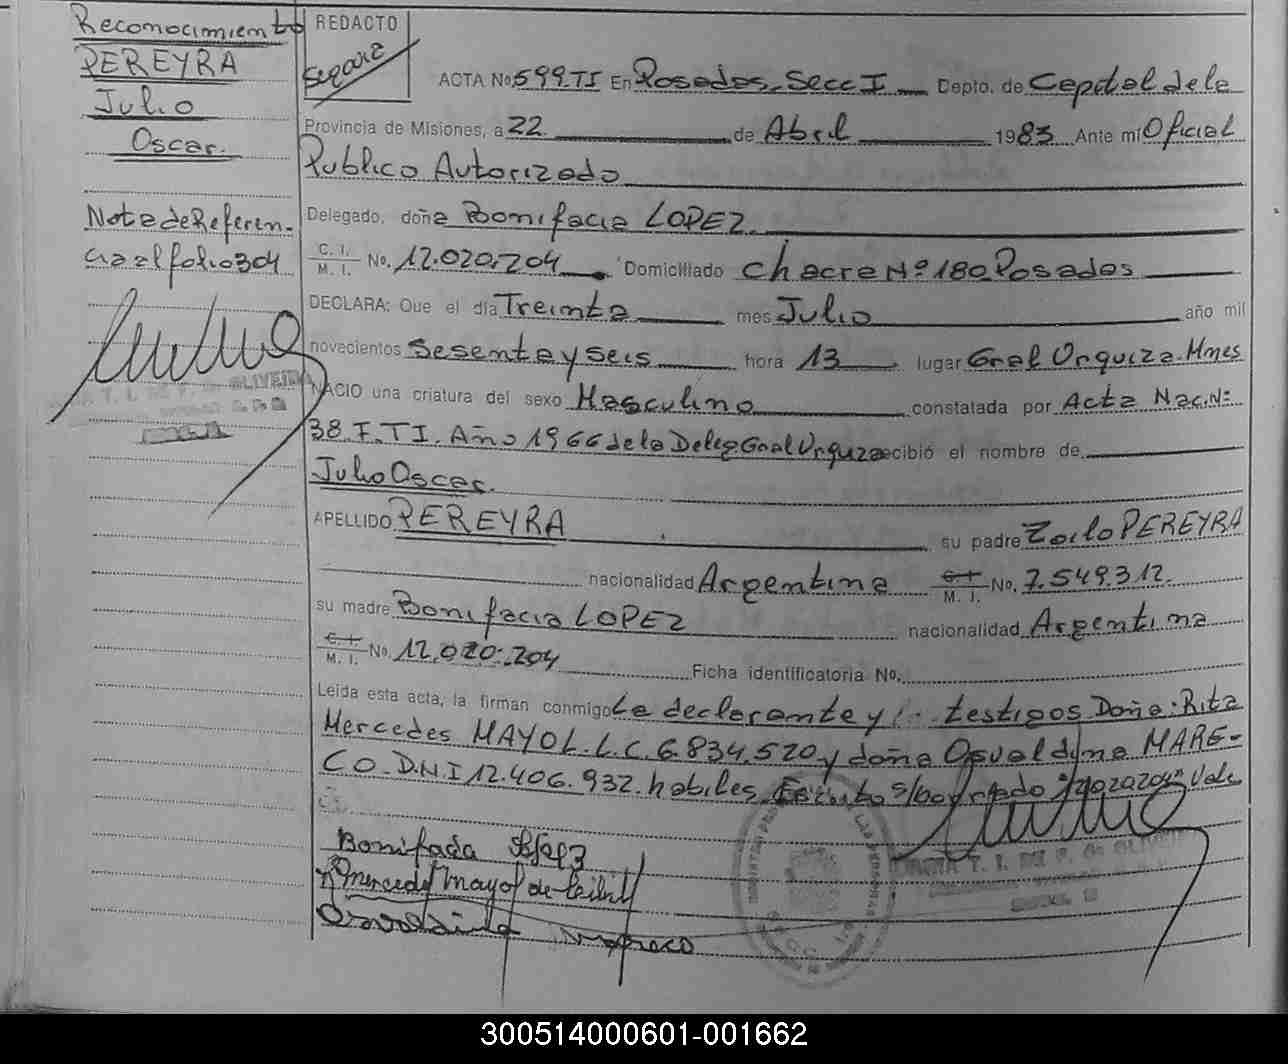 Reconocimiento
PEREYRA
Julio
Oscar.
Nota de Referen-
cia al folio 304
REDACTO
ACTA No. 599.TI En Posadas, Secc I Depto. de Capital de la
Provincia de Misiones, a 22 de Abril 1983 Ante mi Oficial
Publico Autorizado
Delegado, doña Bonifacia LOPEZ.
C. I.
M. I. No. 12.020.204 Domiciliado Chacra Nº 180 Posadas
DECLARA: Que el día Treinta mes Julio año mil
novecientos Sesenta y Seis hora 13 lugar Gral Urquiza. Mnes
NACIO una criatura del sexo Masculino constatada por Acta Nac. Nº
38. F. TI. Año 1966 de la Deleg Gral Urquiza recibió el nombre de
Julio Oscar.
APELLIDO PEREYRA su padre Zoilo PEREYRA
nacionalidad Argentina C. I. M. I. No. 7.549.312.
su madre Bonifacia LOPEZ nacionalidad Argentina
C. I. M. I. No. 12.020.204 Ficha identificatoria No.
Leída esta acta, la firman conmigo La declarante y testigos Doña: Rita
Mercedes MAYOL. L.C. 6.834.520 y doña Osvaldina MARE-
CO. D.N.I 12.406.932. habiles. Escrito s/borrado "12020204" Vale
Bonifacia
Mercedes Mayol de
Osvaldina Mareco
300514000601-001662